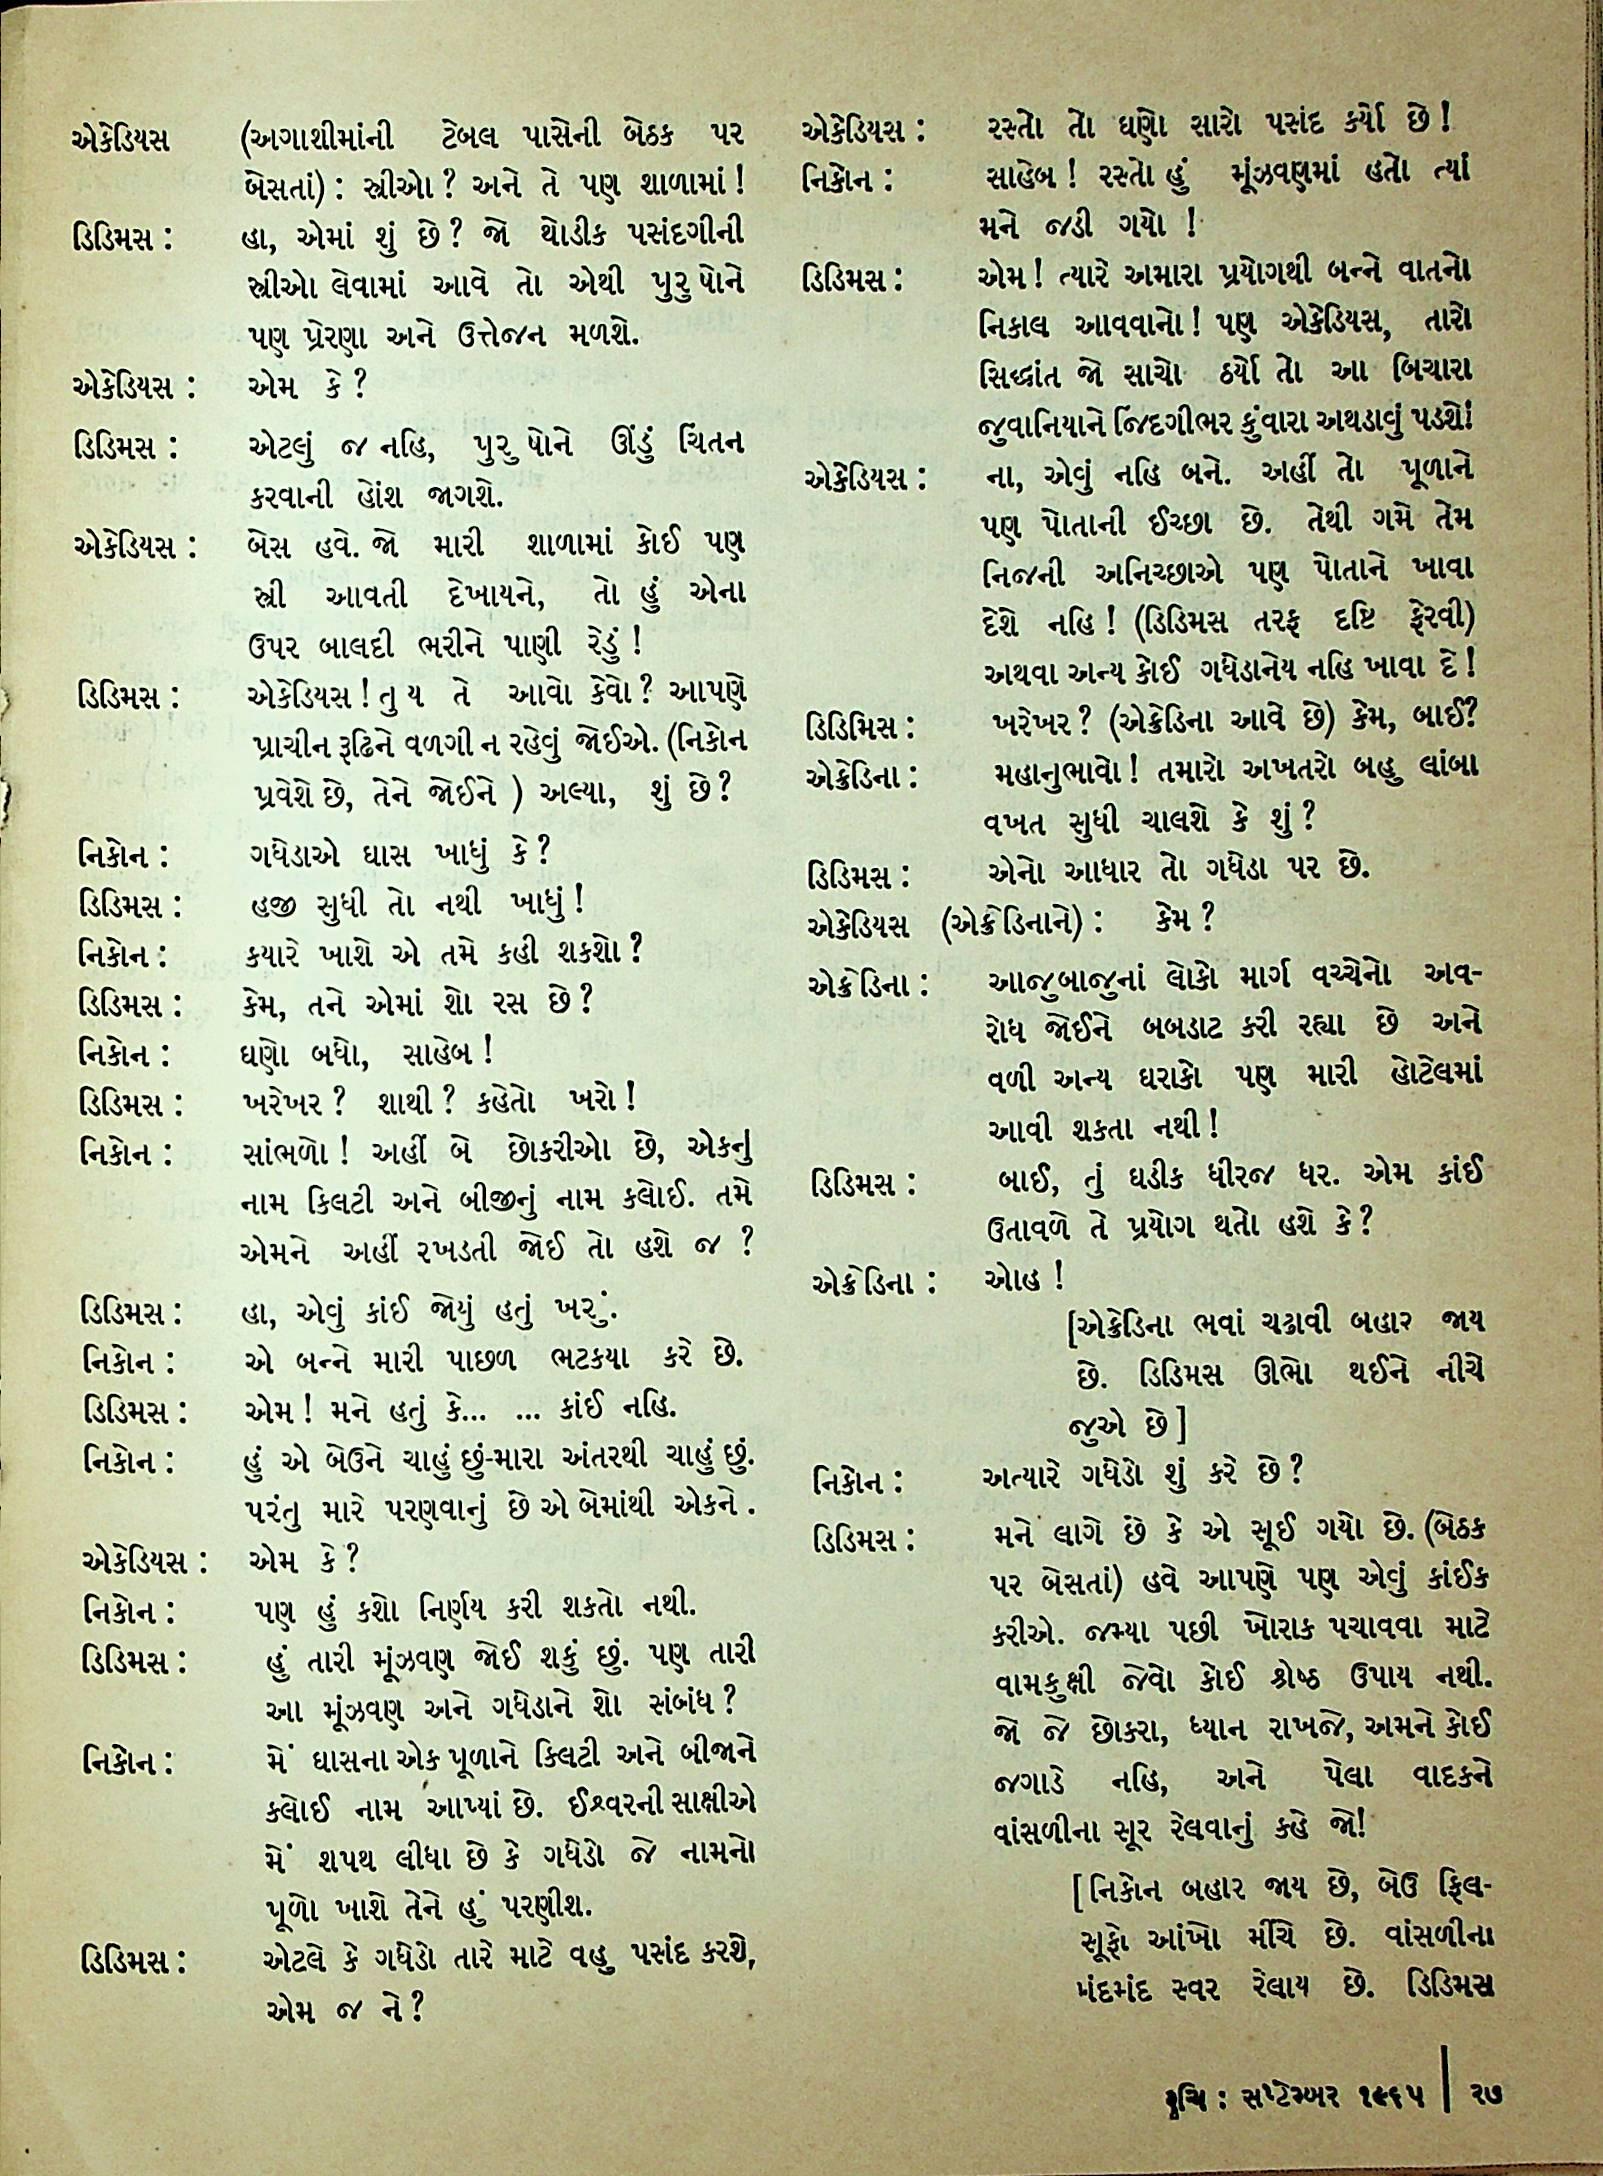 એકેડિયસ (અગાશીમાંની ટેબલ પાસેની બેઠક પર
બેસતાં) : સ્ત્રીઓ ? અને તે પણ શાળામાં !
ડિડિમસ : હા, એમાં શું છે ? જો થોડીક પસંદગીની
સ્ત્રીઓ લેવામાં આવે તો એથી પુરુષોને
પણ પ્રેરણા અને ઉત્તેજન મળશે.
એકેડિયસ : એમ કે ?
ડિડિમસ : એટલું જ નહિ, પુરુષોને ઊંડું ચિંતન
કરવાની હોંશ જાગશે.
એકેડિયસ : બેસ હવે. જો મારી શાળામાં કોઈ પણ
સ્ત્રી આવતી દેખાયને, તો હું એના
ઉપર બાલદી ભરીને પાણી રેડું !
ડિડિમસ : એકેડિયસ ! તુ ય તે આવો કેવો ? આપણે
પ્રાચીન રૂઢિને વળગી ન રહેવું જોઈએ. (નિકોન
પ્રવેશે છે, તેને જોઈને ) અલ્યા, શું છે ?
નિકોન : ગધેડાએ ઘાસ ખાધું કે ?
ડિડિમસ : હજી સુધી તો નથી ખાધું !
નિકોન : કયારે ખાશે એ તમે કહી શકશો ?
ડિડિમસ : કેમ, તને એમાં શો રસ છે ?
નિકોન : ઘણો બધો, સાહેબ !
ડિડિમસ : ખરેખર ? શાથી ? કહેતો ખરો !
નિકોન : સાંભળો ! અહીં બે છોકરીઓ છે, એકનું
નામ ક્લિટી અને બીજીનું નામ ક્લોઈ. તમે
એમને અહીં રખડતી જોઈ તો હશે જ ?
ડિડિમસ : હા, એવું કાંઈ જોયું હતું ખરું.
નિકોન : એ બન્ને મારી પાછળ ભટકયા કરે છે.
ડિડિમસ : એમ ! મને હતું કે... ... કાંઈ નહિ.
નિકોન : હું એ બેઉને ચાહું છું-મારા અંતરથી ચાહું છું.
પરંતુ મારે પરણવાનું છે એ બેમાંથી એકને .
એકેડિયસ : એમ કે ?
નિકોન : પણ હું કશો નિર્ણય કરી શકતો નથી.
ડિડિમસ : હું તારી મૂંઝવણ જોઈ શકું છું. પણ તારી
આ મૂંઝવણ અને ગધેડાને શો સંબંધ ?
નિકોન : મેં ઘાસના એક પૂળાને ક્લિટી અને બીજાને
ક્લોઈ નામ આપ્યાં છે. ઈશ્વરની સાક્ષીએ
મેં શપથ લીધા છે કે ગધેડો જે નામનો
પૂળો ખાશે તેને હું પરણીશ.
ડિડિમસ : એટલે કે ગધેડો તારે માટે વહુ પસંદ કરશે,
એમ જ ને ?
એકેડિયસ : રસ્તો તો ઘણો સારો પસંદ કર્યો છે !
નિકોન : સાહેબ ! રસ્તો હું મૂંઝવણમાં હતો ત્યાં
મને જડી ગયો !
ડિડિમસ : એમ ! ત્યારે અમારા પ્રયોગથી બન્ને વાતનો
નિકાલ આવવાનો ! પણ એકેડિયસ, તારો
સિદ્ધાંત જો સાચો ઠર્યો તો આ બિચારા
જુવાનિયાને જિંદગીભર કુંવારા અથડાવું પડશે!
એકેડિયસ : ના, એવું નહિ બને. અહીં તો પૂળાને
પણ પોતાની ઈચ્છા છે. તેથી ગમે તેમ
નિજની અનિચ્છાએ પણ પોતાને ખાવા
દેશે નહિ ! (ડિડિમસ તરફ દષ્ટિ ફેરવી)
અથવા અન્ય કોઈ ગધેડાનેય નહિ ખાવા દે !
ડિડિમિસ : ખરેખર ? (એક્રેડિના આવે છે) કેમ, બાઈ?
એક્રેડિના : મહાનુભાવો ! તમારો અખતરો બહુ લાંબા
વખત સુધી ચાલશે કે શું ?
ડિડિમસ : એનો આધાર તો ગધેડા પર છે.
એકેડિયસ (એક્રેડિનાને) : કેમ ?
એક્રેડિના : આજુબાજુનાં લોકો માર્ગ વચ્ચેનો અવ-
રોધ જોઈને બબડાટ કરી રહ્યા છે અને
વળી અન્ય ઘરાકો પણ મારી હોટેલમાં
આવી શકતા નથી !
ડિડિમસ : બાઈ, તું ઘડીક ધીરજ ધર. એમ કાંઈ
ઉતાવળે તે પ્રયોગ થતો હશે કે ?
એક્રેડિના : ઓહ !
[એક્રેડિના ભવાં ચઢાવી બહાર જાય
છે. ડિડિમસ ઊભો થઈને નીચે
જુએ છે]
નિકોન : અત્યારે ગધેડો શું કરે છે ?
ડિડિમસ : મને લાગે છે કે એ સૂઈ ગયો છે. (બેઠક
પર બેસતાં) હવે આપણે પણ એવું કાંઈક
કરીએ. જમ્યા પછી ખોરાક પચાવવા માટે
વામકુક્ષી જેવો કોઈ શ્રેષ્ઠ ઉપાય નથી.
જો જે છોકરા, ધ્યાન રાખજે, અમને કોઈ
જગાડે નહિ, અને પેલા વાદકને
વાંસળીના સૂર રેલવાનું કહે જો!
[નિકોન બહાર જાય છે, બેઉ ફિલ-
સૂફો આંખો મીંચે છે. વાંસળીના
મંદમંદ સ્વર રેલાય છે. ડિડિમસ
રુચિ : સપ્ટેમ્બર ૧૯૬૫ | ૨૭